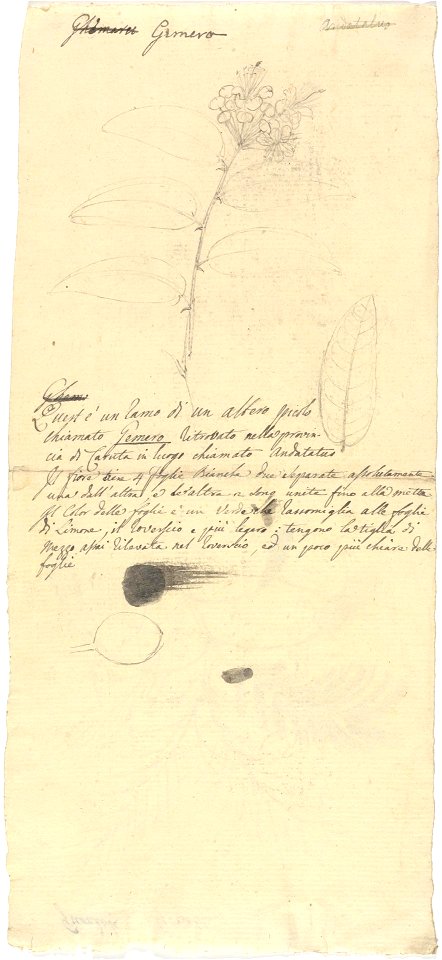 Ghemarei Gemero
Andatatus
Ghemo
Quest è un ramo di un albero picolo
chiamato Gemero. Ritrovato nella provin-
cia di Caruta in luogo chiamato Andatatus
Il fiore tiene 4 foglie Bianche due separate assolutamente
una dall'altra e le altre 2 sono unite fino alla metta
Il Color delle foglie è un Verde che rassomiglia alle foglie
di Limone, il roverscio e più legero; tengono la riglia di
mezzo assai rilavata nel roverscio, ed un poco più chiara delle
foglie